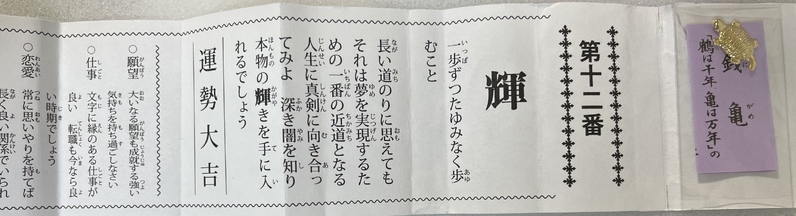 銭亀
「鶴は千年 亀は万年」の
第十二番
輝
一歩ずつたゆみなく歩
むこと
長い道のりに思えても
それは夢を実現するた
めの一番の近道となる
人生に真剣に向き合っ
てみよ 深き闇を知り
本物の輝きを手に入
れるでしょう
運勢大吉
○願望 大いなる願望も成就する強い
気持ちを持ち過ごしなさい
○仕事 文字に縁のある仕事が
良い 転職も今なら良
い時期でしょう
○恋愛 常に思いやりを持てば
長く良い関係でいられ